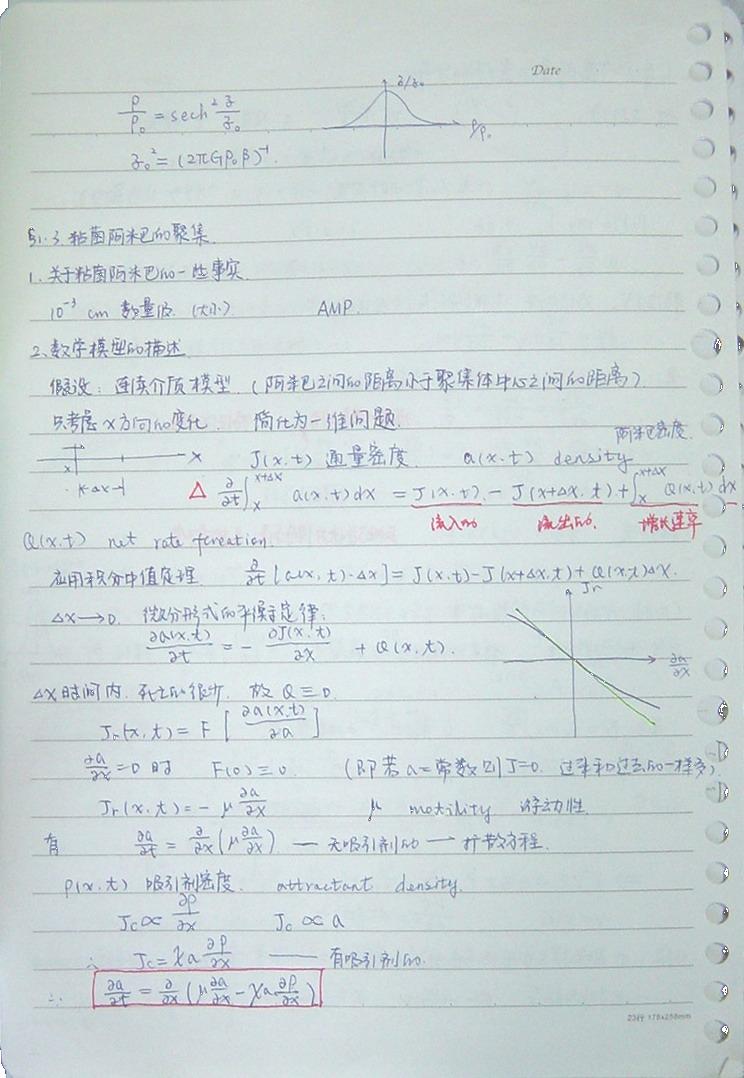 Date
ρ/ρ₀ = sech² z/z₀
z/z₀
ρ/ρ₀
z₀² = (2πGρ₀β)⁻¹.
§1.3 粘菌阿米巴的聚集.
1. 关于粘菌阿米巴的一些事实
10⁻³ cm 数量级 (大小) AMP.
2. 数学模型的描述
假设: 连续介质模型. (阿米巴之间的距离小于聚集体中心之间的距离)
只考虑x方向的变化 简化为一维问题.
阿米巴密度.
x x J(x.t) 通量密度. a(x.t) density
|←Δx→|
Δ ∂/∂t ∫ₓ^(x+Δx) a(x.t)dx = J(x.t) - J(x+Δx.t) + ∫ₓ^(x+Δx) Q(x.t)dx
流入的 流出的. 增长速率
Q(x.t) net rate fcreation.
应用积分中值定理. ∂/∂t [a(x,t)·Δx] = J(x.t) - J(x+Δx.t) + Q(x.t)Δx.
Δx→0. 微分形式的平衡定律:
∂a(x.t)/∂t = - ∂J(x.t)/∂x + Q(x.t).
Jr
∂a/∂x
Δx时间内, 死亡的很少. 故 Q≡0.
Jr(x,t) = F [∂a(x.t)/∂a]
∂a/∂x=0时 F(0)≡0. (即若a=常数 则J=0. 过来和过去的一样多).
Jr(x.t) = -μ ∂a/∂x μ motility 浮动性.
有 ∂a/∂t = ∂/∂x (μ ∂a/∂x) — 无吸引剂的 — 扩散方程.
ρ(x.t) 吸引剂密度. attractant density.
Jc ∝ ∂ρ/∂x Jc ∝ a
∴ Jc = χa ∂ρ/∂x —— 有吸引剂的.
∴ ∂a/∂t = ∂/∂x (μ ∂a/∂x - χa ∂ρ/∂x)
23行 178x258mm